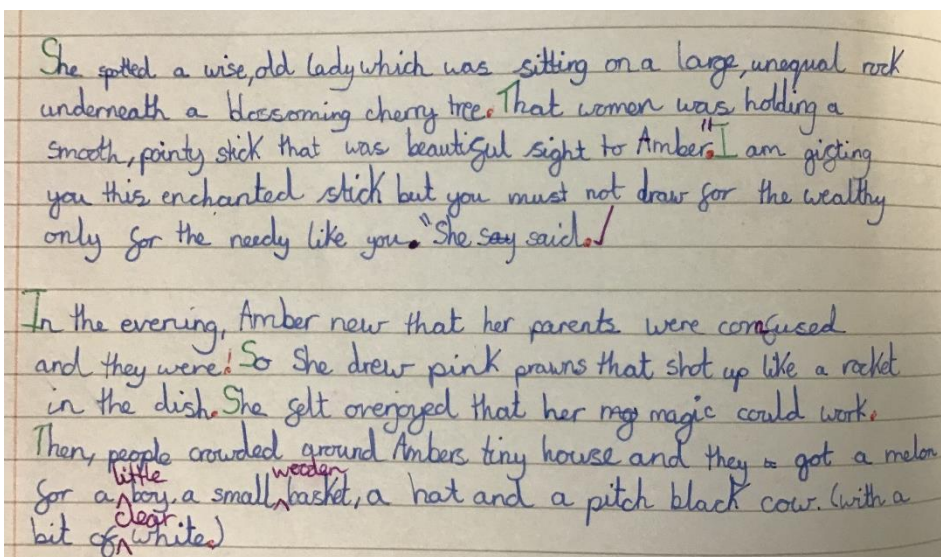 She spotted a wise, old lady which was sitting on a large, unequal rock
underneath a blossoming cherry tree. That women was holding a
smooth, pointy stick that was beautiful sight to Amber. "I am gifting
you this enchanted stick but you must not draw for the wealthy
only for the needy like you." She say said.
In the evening, Amber new that her parents were comfused
and they were! So She drew pink prawns that shot up like a rocket
in the dish. She felt overjoyed that her mag magic could work.
Then, people crowded around Ambers tiny house and they got a melon
for a little boy, a small wooden basket, a hat and a pitch black cow. (with a
bit of clear white.)